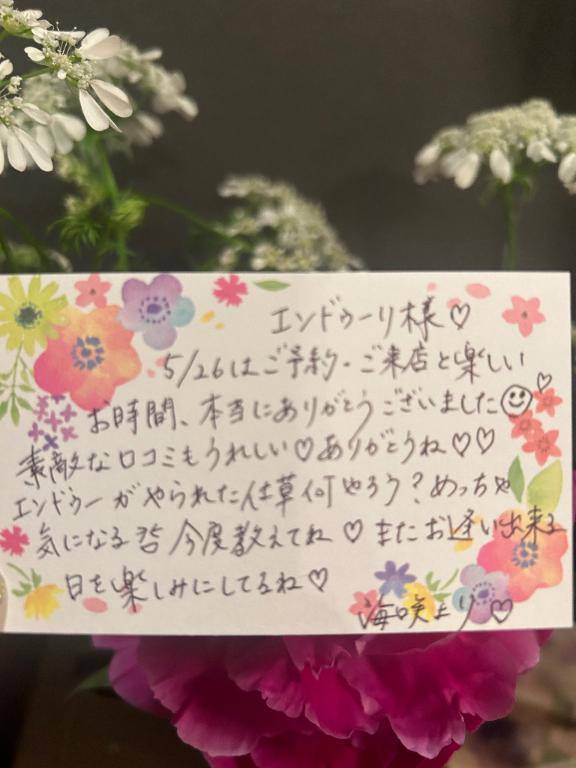 エンドゥーリ様♡
5/26はご予約・ご来店と楽しい
お時間、本当にありがとうございました☺♡
素敵な口コミもうれしい♡ありがとうね♡♡
エンドゥーがやられた仕草何やろう?めっちゃ
気になる 今度教えてね♡またお逢い出来る
日を楽しみにしてるね♡
海咲より♡